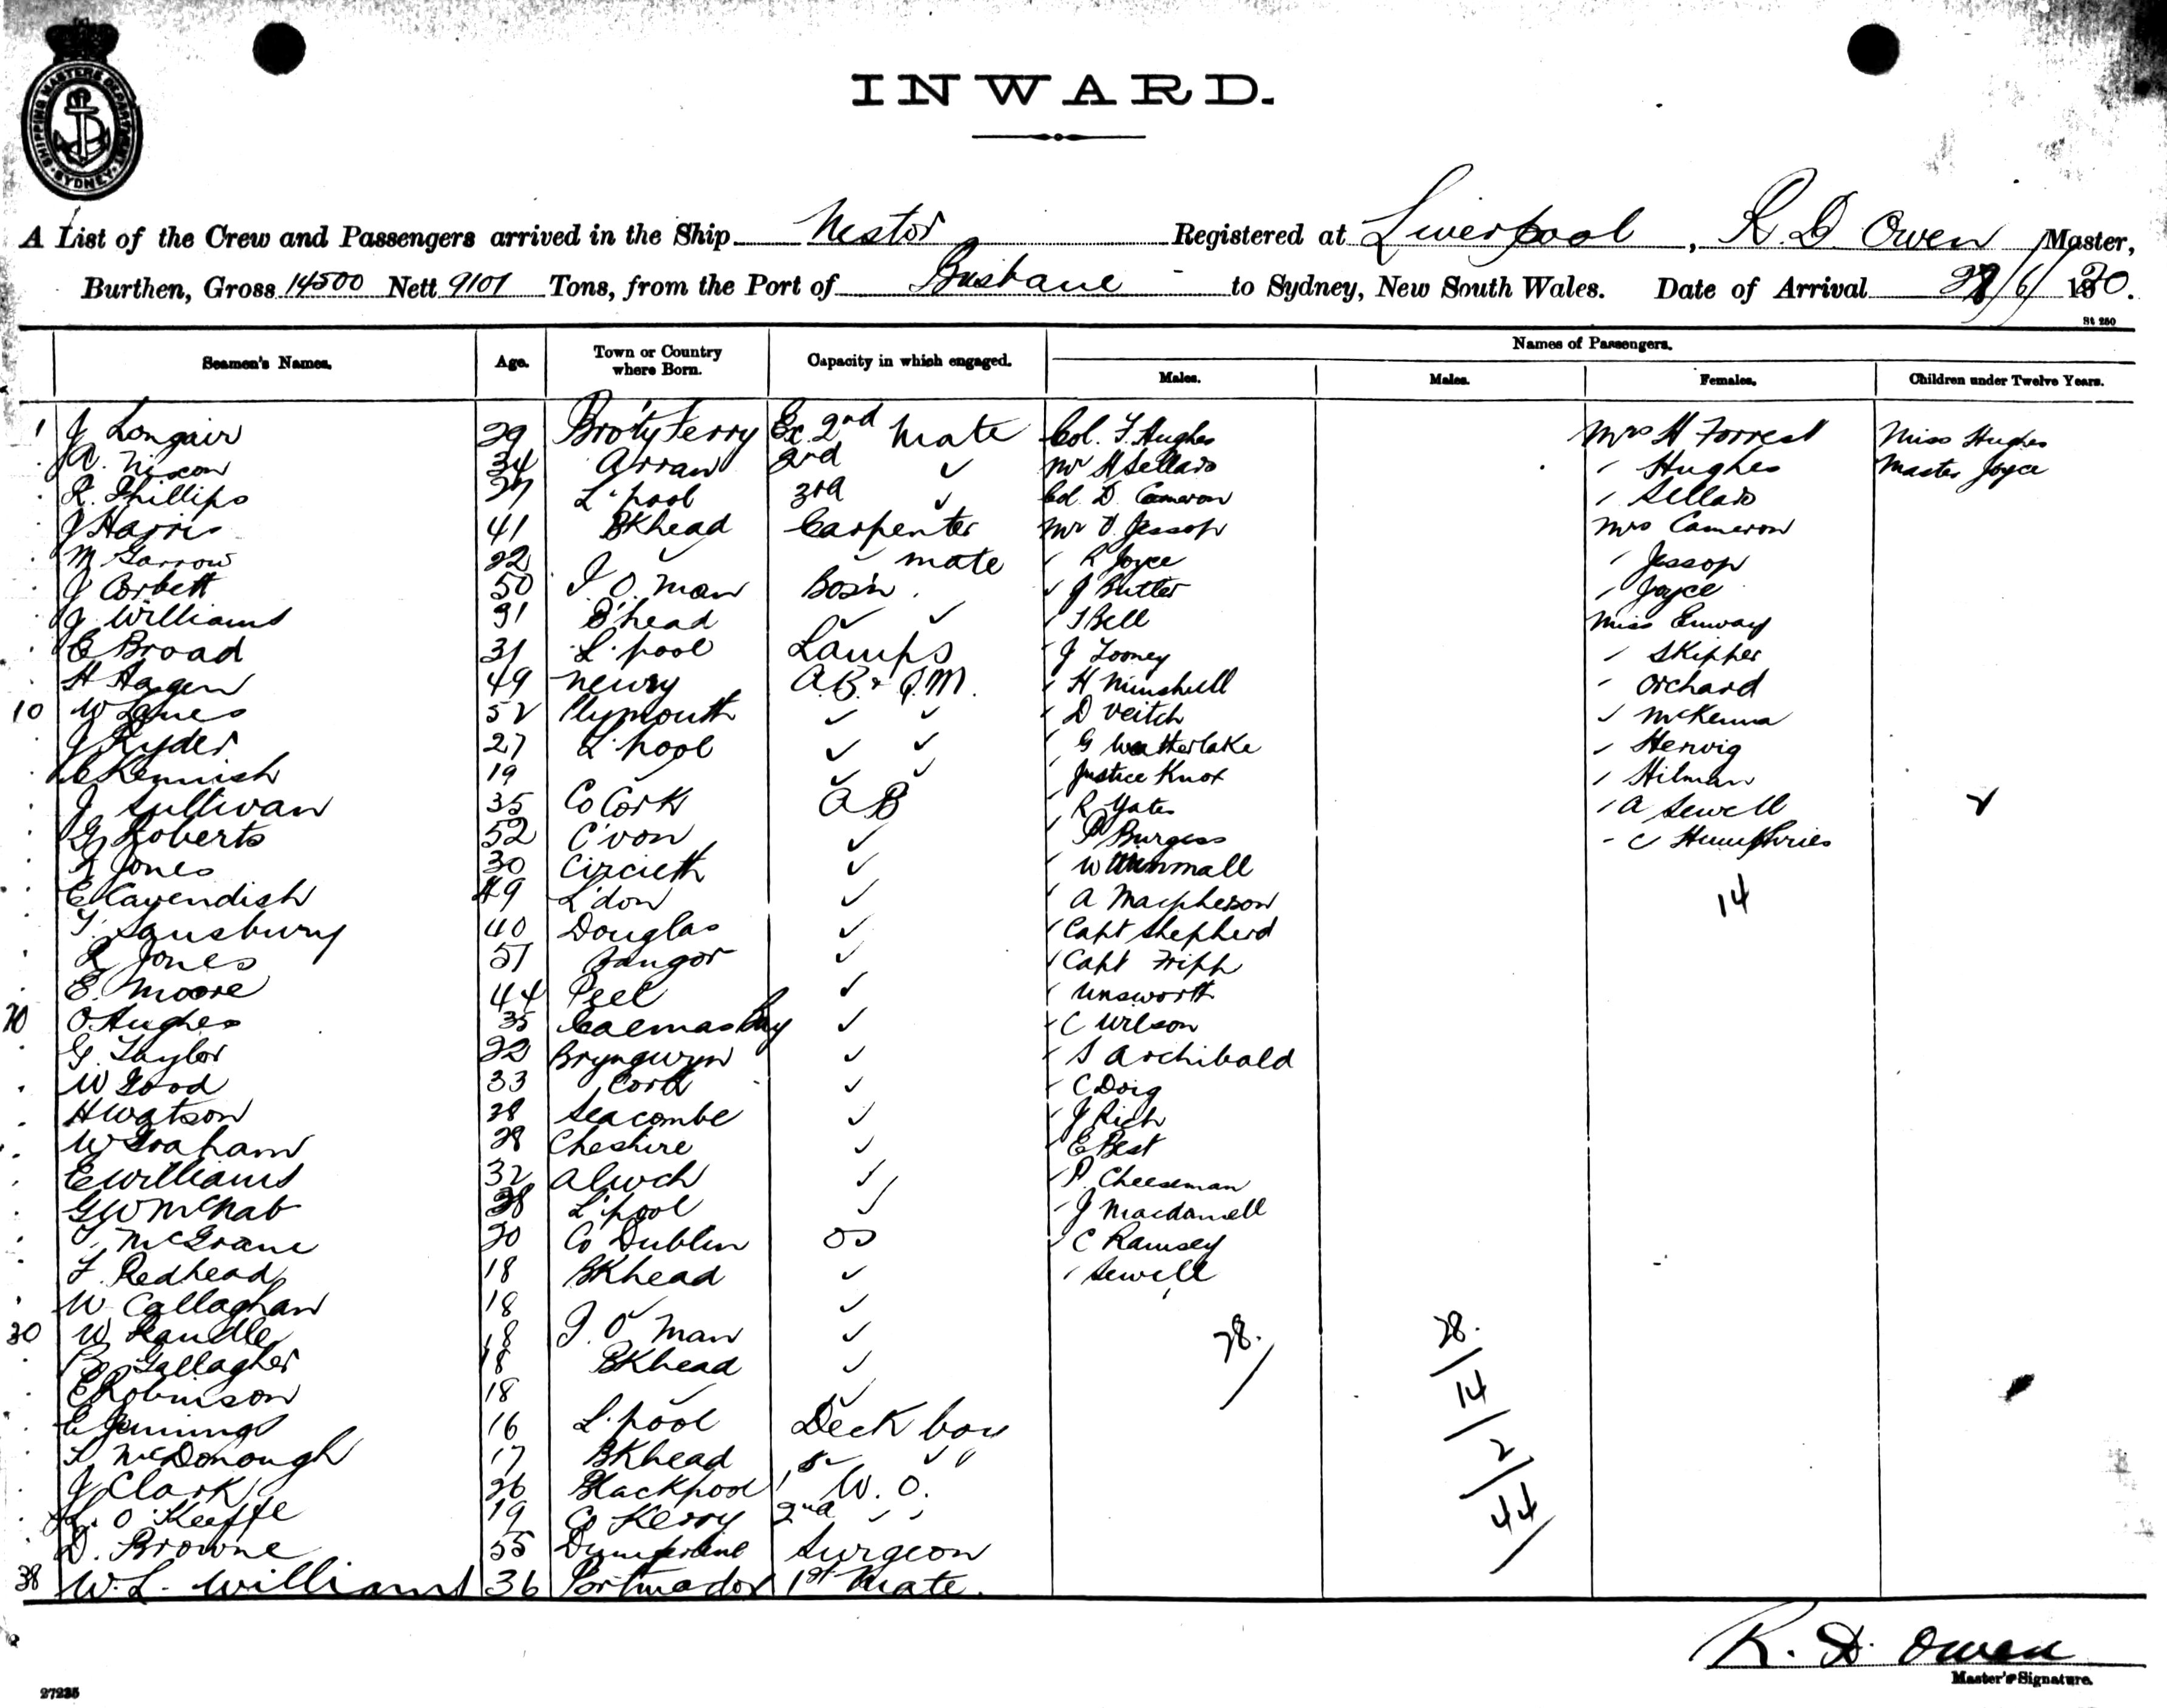 SHIPPING MASTERS DEPARTMENT SYDNEY
INWARD.
A List of the Crew and Passengers arrived in the Ship Nestor Registered at Liverpool, R. D Owen Master,
Burthen, Gross 14500 Nett 9101 Tons, from the Port of Brisbane to Sydney, New South Wales. Date of Arrival /6/ 20.
St 250
Seamen's Names. Age. Town or Country where Born. Capacity in which engaged. Names of Passengers.
Males. Males. Females. Children under Twelve Years.
1 J Longair 29 Bro'ty Ferry Ex 2nd Mate Col. F. Hughes Mrs H Forrest Miss Hughes
A. Nixon 34 Arran 2nd ✓ Mr H Sellars Hughes Master Joyce
R. Phillips 27 L'pool 3rd ✓ Col. D. Cameron Sellars
J Harris 41 BKhead Carpenter Mr Jessop Mrs Cameron
M Garrow 22 ✓ ✓ mate R Joyce Jessop
J Corbett 50 I. O. Man Bos'n J Butler Joyce
J Williams 31 B'head ✓ ✓ T Bell Miss Emway
E Broad 31 L'pool Lamps J Looney Skipper
H Hagen 49 Newry A.B. & Q.M. H Minshull Orchard
10 W 52 Plymouth ✓ ✓ D Veitch McKenna
J Ryder 27 L'pool ✓ ✓ G Herwig
C Kennish 19 ✓ ✓ ✓ Justice Knox Hilman
J Sullivan 35 Co Cork A B R Yates A Sewell 2
G Roberts 52 C'von ✓ P Burgess C Humphries
R Jones 30 Circieth ✓ W
E Cavendish 49 L'don ✓ A Macpherson 14
T. Sansbury 40 Douglas ✓ Capt Shepherd
R Jones 51 Bangor ✓ Capt Tripp
E. Moore 44 Peel ✓ Unsworth
20 O. Hughes 35 Bay ✓ C Wilson
G. Taylor 22 Bryngwyn ✓ S Archibald
W Good 33 Cork ✓ C Doig
H Watson 28 Seacombe ✓ J Rich
W Graham 28 Cheshire ✓ E Best
E Williams 32 Alwch ✓ P. Cheeseman
G W McNab 28 L'pool ✓ J Macdannell
T. McGrane 20 Co Dublin OS C Ramsey
F. Redhead 18 BKhead ✓ Sewell
W Callaghan 18 ✓ ✓
30 W Randle 18 I. O. Man ✓ 28. 28.
B Gallagher 18 BKhead ✓
E Robinson 18 ✓ ✓ 14
E Jennings 16 L'pool Deck boy
McDonough 17 BKhead ✓ ✓ 2
J Clark 26 Blackpool 1st W. O.
O'Keeffe 19 Co Kerry 2nd 44
D. Browne 55 Surgeon
38 W. L. Williams 36 Portmadoc 1st Mate.
R. D. Owen
Master's Signature.
27235